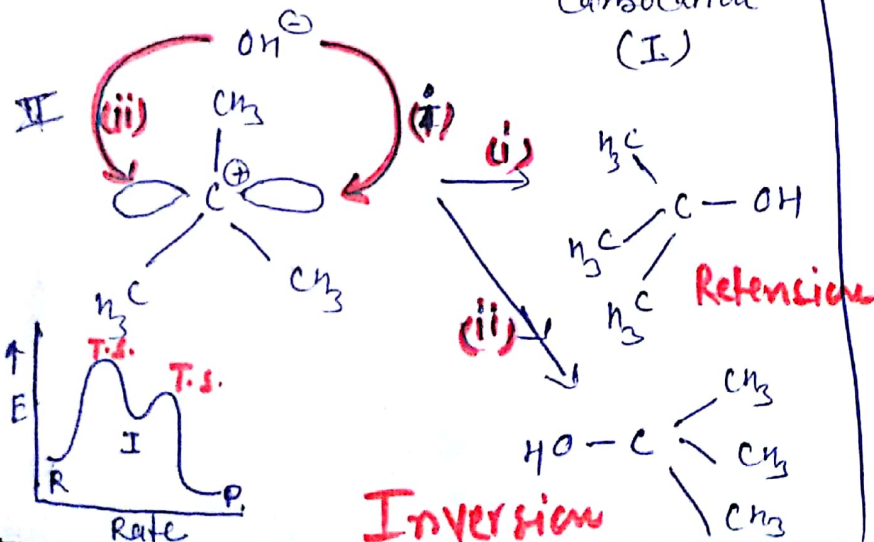 Carbocation
(I)
OH⊖
II
(ii)
(i)
CH3
C⊕
H3C
CH3
(i)
H3C
H3C
H3C
C — OH
Retension
(ii)
HO — C
CH3
CH3
CH3
Inversion
T.S.
T.S.
↑
E
I
R
P
Rate